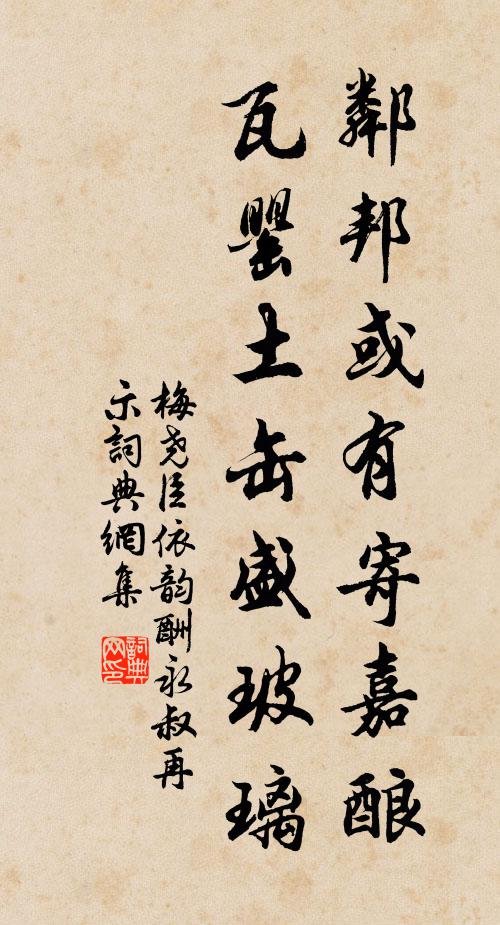 鄰邦或有寄嘉酿
瓦罂土缶盛玻璃
梅尧臣依韵酬永叔再
示詞典網集
詞典
网印